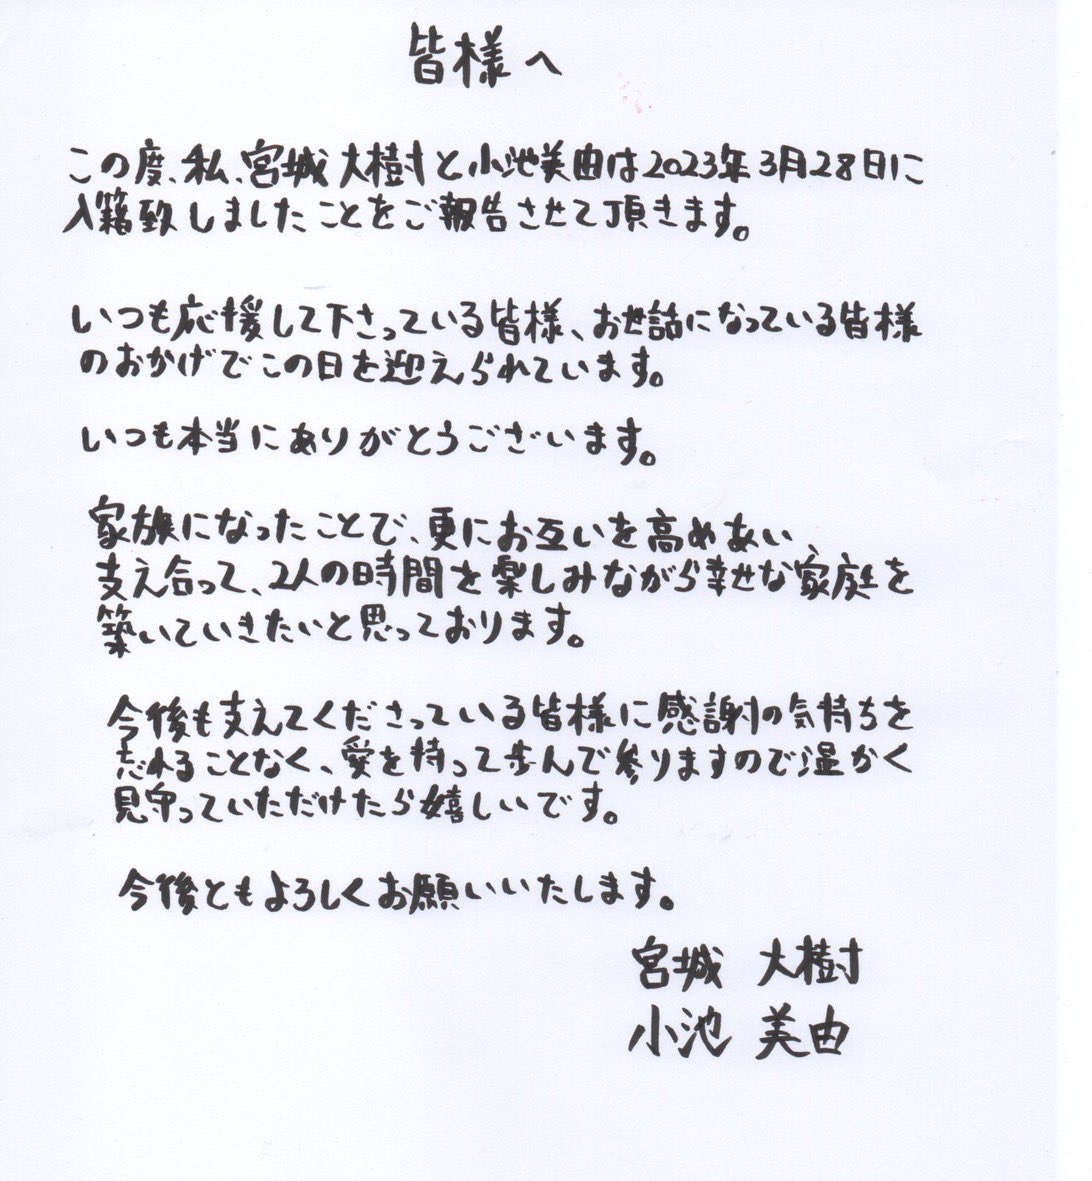 皆様へ
この度、私、宮城大樹と小池美由は2023年3月28日に
入籍致しましたことをご報告させて頂きます。
いつも応援して下さっている皆様、お世話になっている皆様
のおかげでこの日を迎えられています。
いつも本当にありがとうございます。
家族になったことで、更にお互いを高めあい、
支え合って、2人の時間を楽しみながら幸せな家庭を
築いていきたいと思っております。
今後も支えてくださっている皆様に感謝の気持ちを
忘れることなく、愛を持って歩んで参りますので温かく
見守っていただけたら嬉しいです。
今後ともよろしくお願いいたします。
宮城 大樹
小池 美由